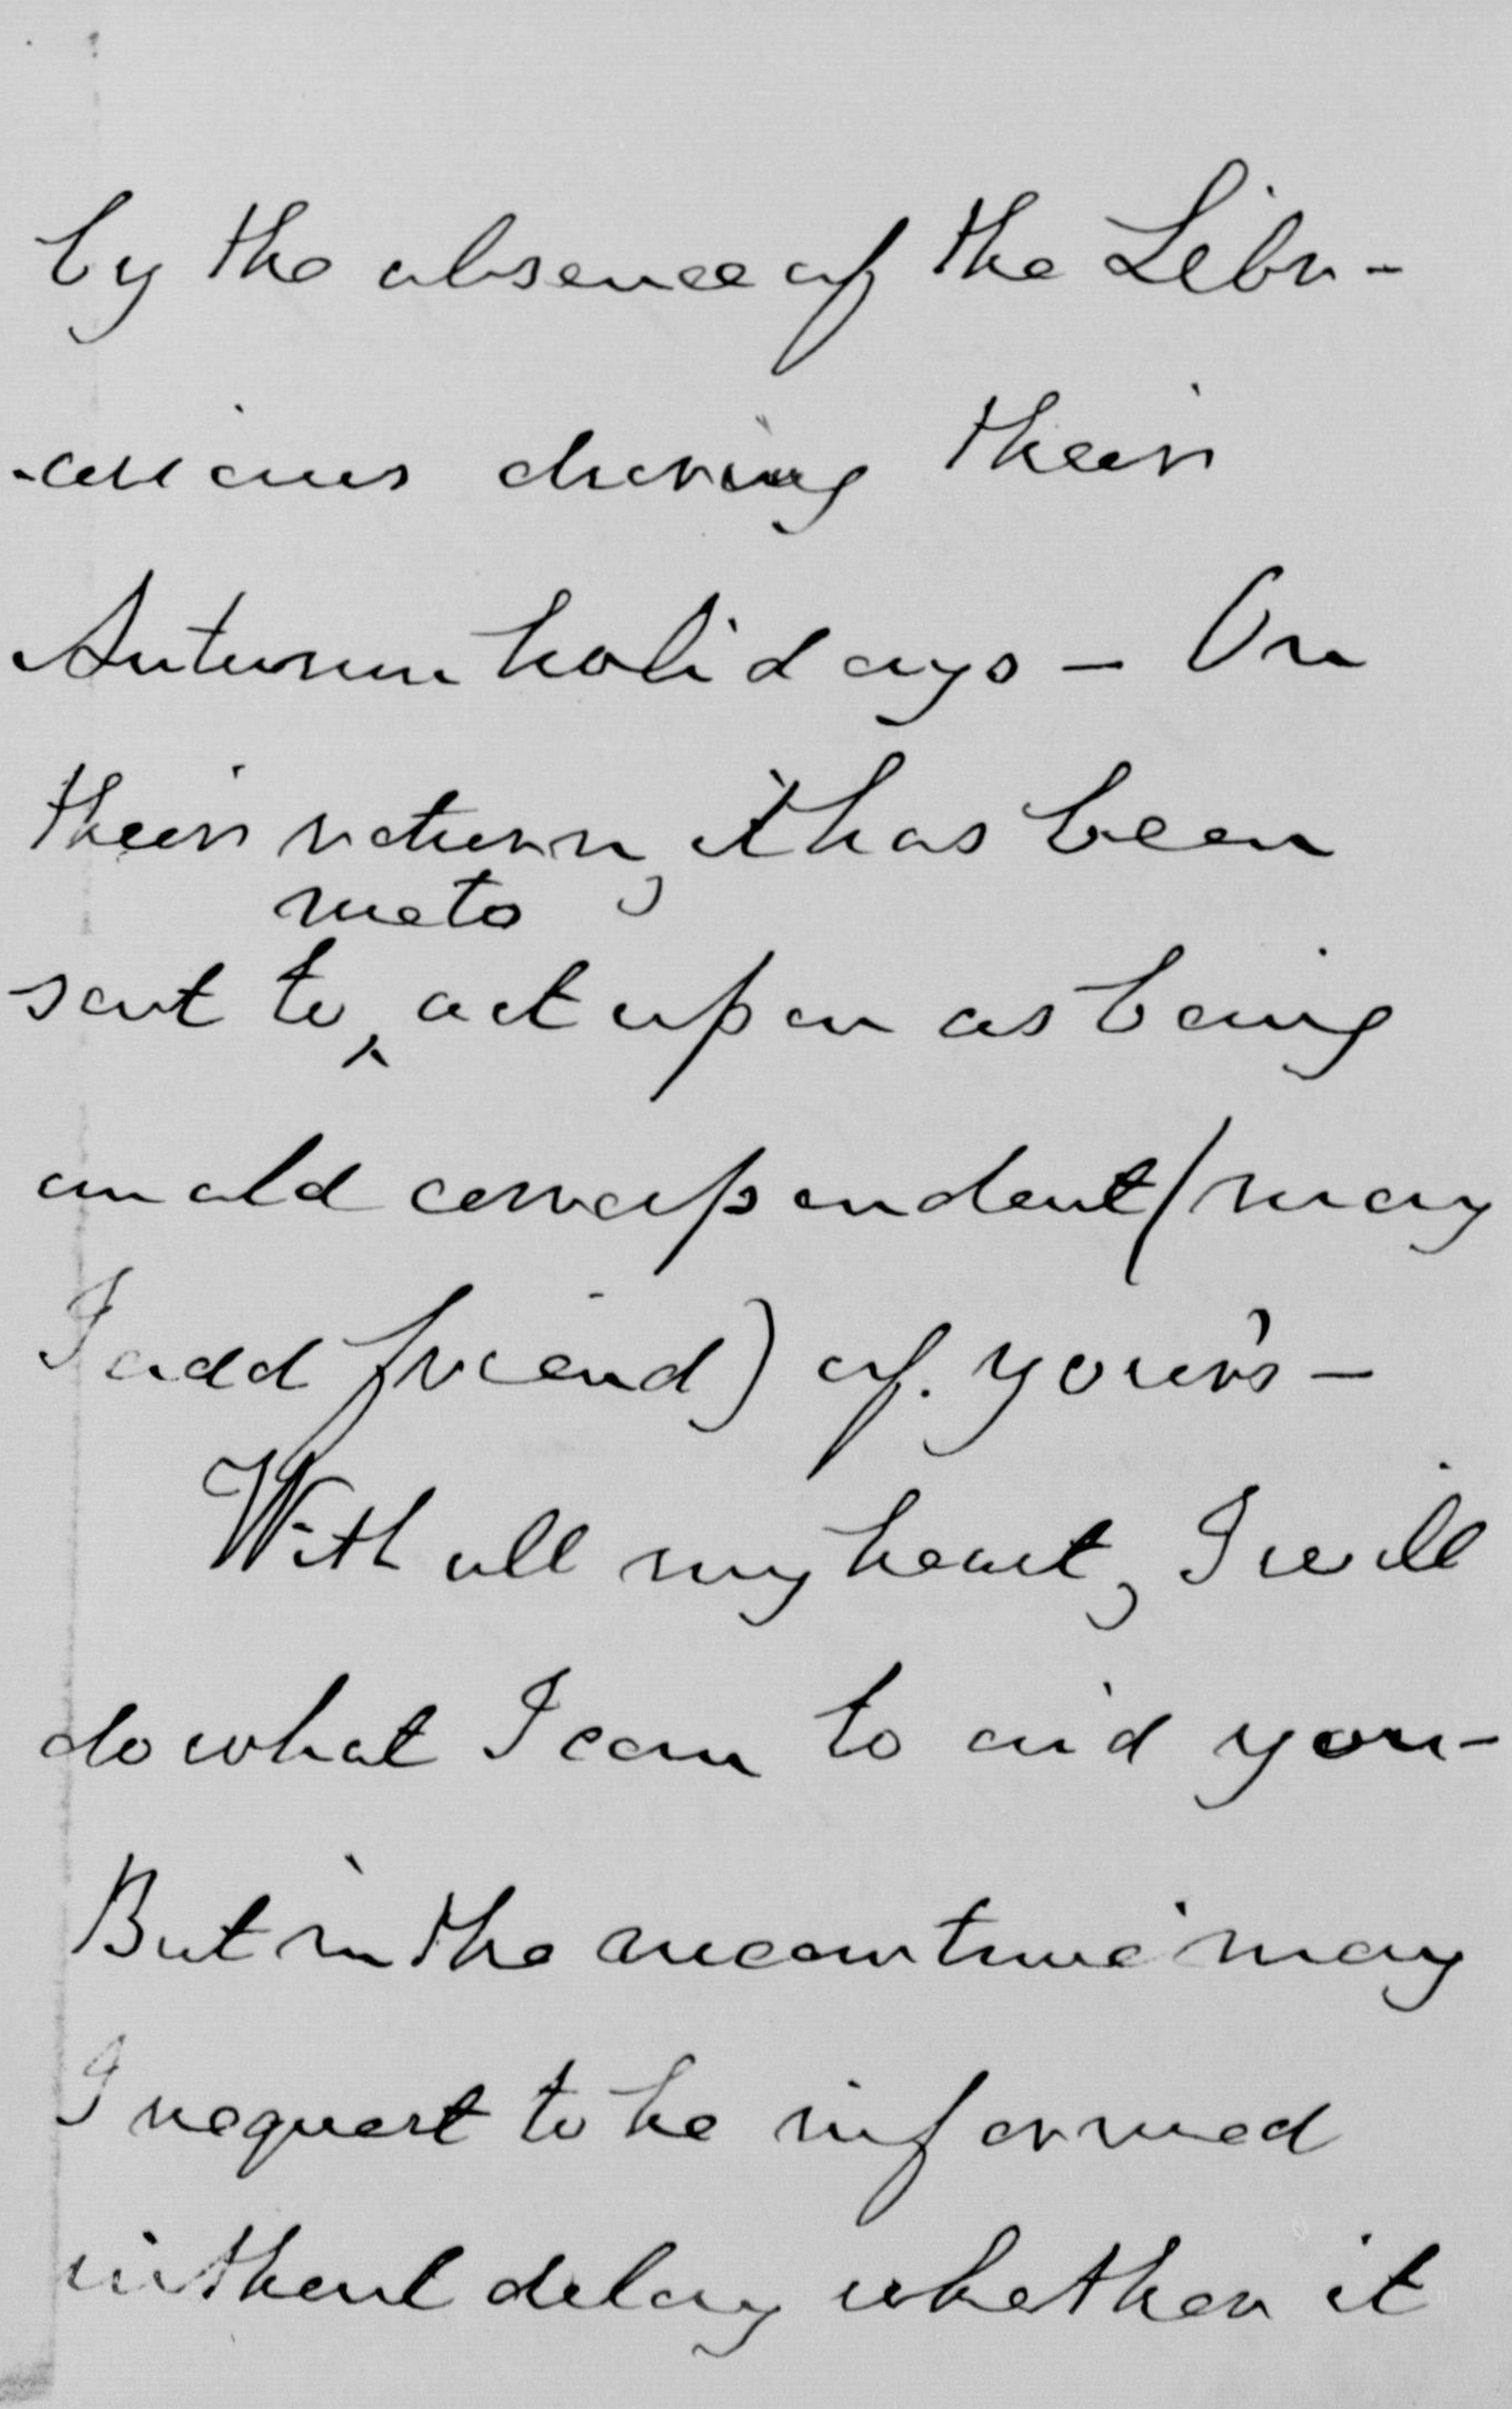 by the absence of the Libr-
-arians during their
Autumn holidays - On
their return, it has been
me to
sent to ‸ act upon as being
an old correspondent (may
I add friend) of your's -
With all my heart, I will
do what I can to aid you -
But in the meantime may
I request to be informed
without delay whether it